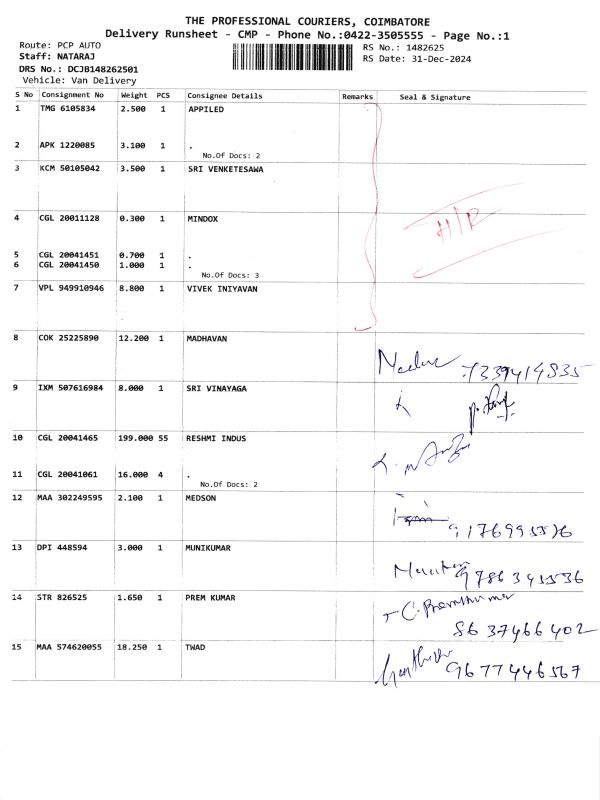 THE PROFESSIONAL COURIERS, COIMBATORE
Delivery Runsheet - CMP - Phone No.:0422-3505555 - Page No.:1
Route: PCP AUTO
Staff: NATARAJ
DRS No.: DCJB148262501
Vehicle: Van Delivery
RS No.: 1482625
RS Date: 31-Dec-2024
S No Consignment No Weight PCS Consignee Details Remarks Seal & Signature
1 TMG 6105834 2.500 1 APPILED
2 APK 1220085 3.100 1 .
No.Of Docs: 2
3 KCM 50105042 3.500 1 SRI VENKETESAWA
4 CGL 20011128 0.300 1 MINDOX
H/R
5 CGL 20041451 0.700 1 .
6 CGL 20041450 1.000 1 .
No.Of Docs: 3
7 VPL 949910946 8.800 1 VIVEK INIYAVAN
8 COK 25225890 12.200 1 MADHAVAN
7339414835
9 IXM 507616984 8.000 1 SRI VINAYAGA
10 CGL 20041465 199.000 55 RESHMI INDUS
11 CGL 20041061 16.000 4 .
No.Of Docs: 2
12 MAA 302249595 2.100 1 MEDSON
13 DPI 448594 3.000 1 MUNIKUMAR
14 STR 826525 1.650 1 PREM KUMAR
C. Premkumar
8637466402
15 MAA 574620055 18.250 1 TWAD
9677446567